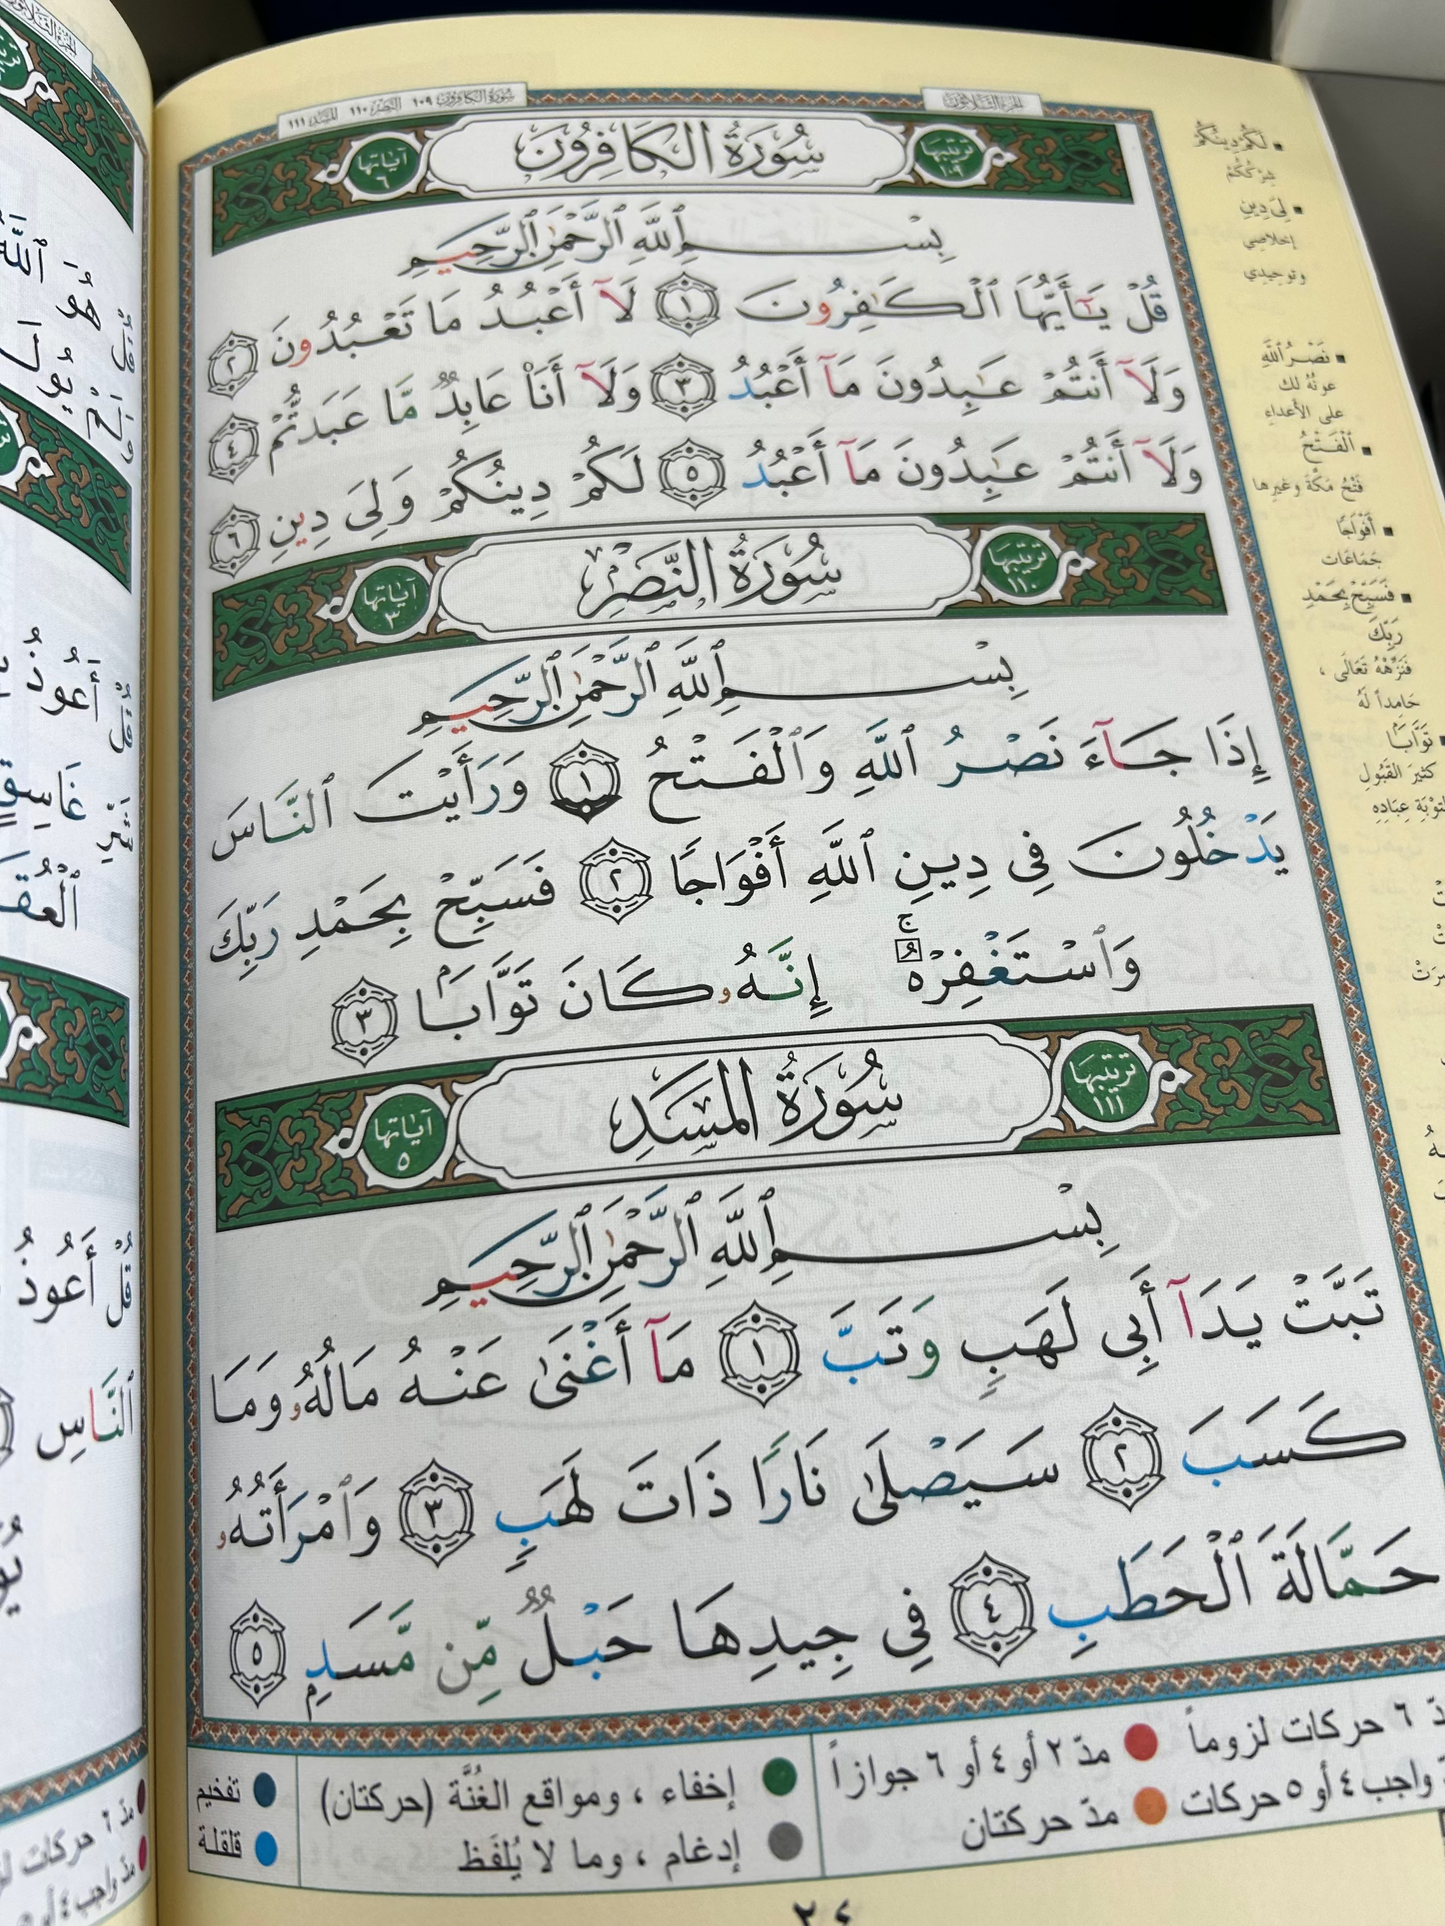 الجزء الثلاثون
سورة الكافرون ١٠٩ النصر ١١٠ المسد ١١١
ترتيبها ١٠٩ سُورَةُ الكَافِرُون آياتها ٦
بِسْمِ ٱللَّهِ ٱلرَّحْمَٰنِ ٱلرَّحِيمِ
قُلْ يَـٰٓأَيُّهَا ٱلْكَـٰفِرُونَ ١ لَآ أَعْبُدُ مَا تَعْبُدُونَ ٢
وَلَآ أَنتُمْ عَـٰبِدُونَ مَآ أَعْبُدُ ٣ وَلَآ أَنَا۠ عَابِدٌ مَّا عَبَدتُّمْ ٤
وَلَآ أَنتُمْ عَـٰبِدُونَ مَآ أَعْبُدُ ٥ لَكُمْ دِينُكُمْ وَلِىَ دِينِ ٦
ترتيبها ١١٠ سُورَةُ النَّصْرِ آياتها ٣
بِسْمِ ٱللَّهِ ٱلرَّحْمَٰنِ ٱلرَّحِيمِ
إِذَا جَآءَ نَصْرُ ٱللَّهِ وَٱلْفَتْحُ ١ وَرَأَيْتَ ٱلنَّاسَ
يَدْخُلُونَ فِى دِينِ ٱللَّهِ أَفْوَاجًا ٢ فَسَبِّحْ بِحَمْدِ رَبِّكَ
وَٱسْتَغْفِرْهُ ۚ إِنَّهُۥ كَانَ تَوَّابًۢا ٣
ترتيبها ١١١ سُورَةُ المَسَدِ آياتها ٥
بِسْمِ ٱللَّهِ ٱلرَّحْمَٰنِ ٱلرَّحِيمِ
تَبَّتْ يَدَآ أَبِى لَهَبٍ وَتَبَّ ١ مَآ أَغْنَىٰ عَنْهُ مَالُهُۥ وَمَا
كَسَبَ ٢ سَيَصْلَىٰ نَارًا ذَاتَ لَهَبٍ ٣ وَٱمْرَأَتُهُۥ
حَمَّالَةَ ٱلْحَطَبِ ٤ فِى جِيدِهَا حَبْلٌ مِّن مَّسَدٍۭ ٥
لَكُمْ دِينُكُمْ
شِرْكُكُمْ
لِىَ دِينِ
إخلاصي
وتوحيدي
نَصْرُ اللَّهِ
عونُهُ لك
على الأعداء
ٱلْفَتْحُ
فَتْحُ مَكَّةَ وغيرِها
أَفْوَاجًا
جَمَاعَات
فَسَبِّحْ بِحَمْدِ
رَبِّكَ
فَنَزِّهْهُ تَعَالَى ،
حَامِداً لَهُ
تَوَّابًا
كثيرَ القَبُولِ
لتوْبَةِ عِبَادِهِ
مدّ ٦ حركات لزوماً ● مدّ ٢ أو ٤ أو ٦ جوازاً
واجب ٤ أو ٥ حركات ● مدّ حركتان
● إخفاء ، ومواقع الغُنَّة (حركتان)
● إدغام ، وما لا يُلفَظ
● تفخيم
● قلقلة
قُلْ هُوَ ٱللَّهُ
قُلْ أَعُوذُ
غَاسِقٍ
قُلْ أَعُوذُ
ٱلنَّاسِ